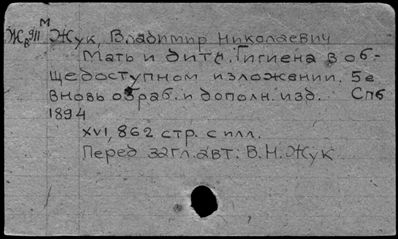 Жв911м Жук, Владимир Николаевич
Мать и дитя. Гигиена в об-
щедоступном изложении. 5е
вновь обраб. и дополн. изд. Спб
1894
XVI, 862 стр. с илл.
Перед загл. авт: В.Н. Жук